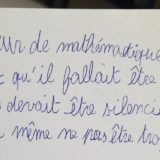 eur de mathématique
qu'il fallait être
devait être silenci
même ne pas être tro